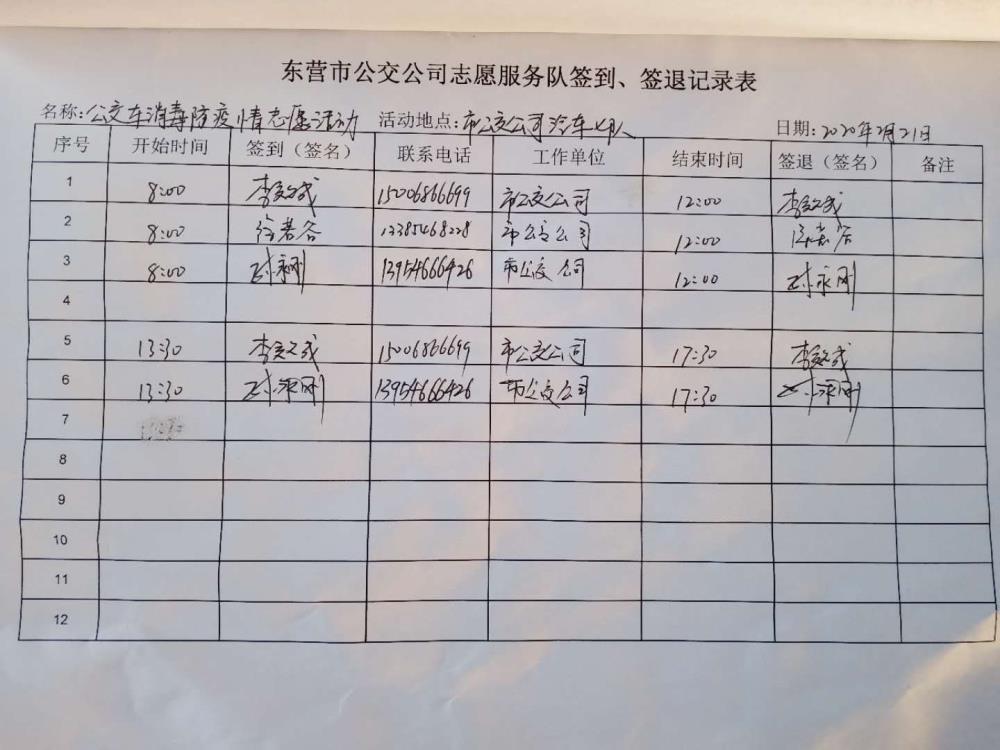 东营市公交公司志愿服务队签到、签退记录表
名称:公交车消毒防疫情志愿活动 活动地点:市公交公司汽车七队 日期:2020年2月21日
序号 开始时间 签到（签名） 联系电话 工作单位 结束时间 签退（签名） 备注
1 8:00 李文成 15006866699 市公交公司 12:00 李文成
2 8:00 13385468228 市公交公司 12:00
3 8:00 封永刚 13954666426 市公交公司 12:00 封永刚
4
5 13:30 李文成 15006866699 市公交公司 17:30 李文成
6 13:30 封永刚 13954666426 市公交公司 17:30 封永刚
7
8
9
10
11
12